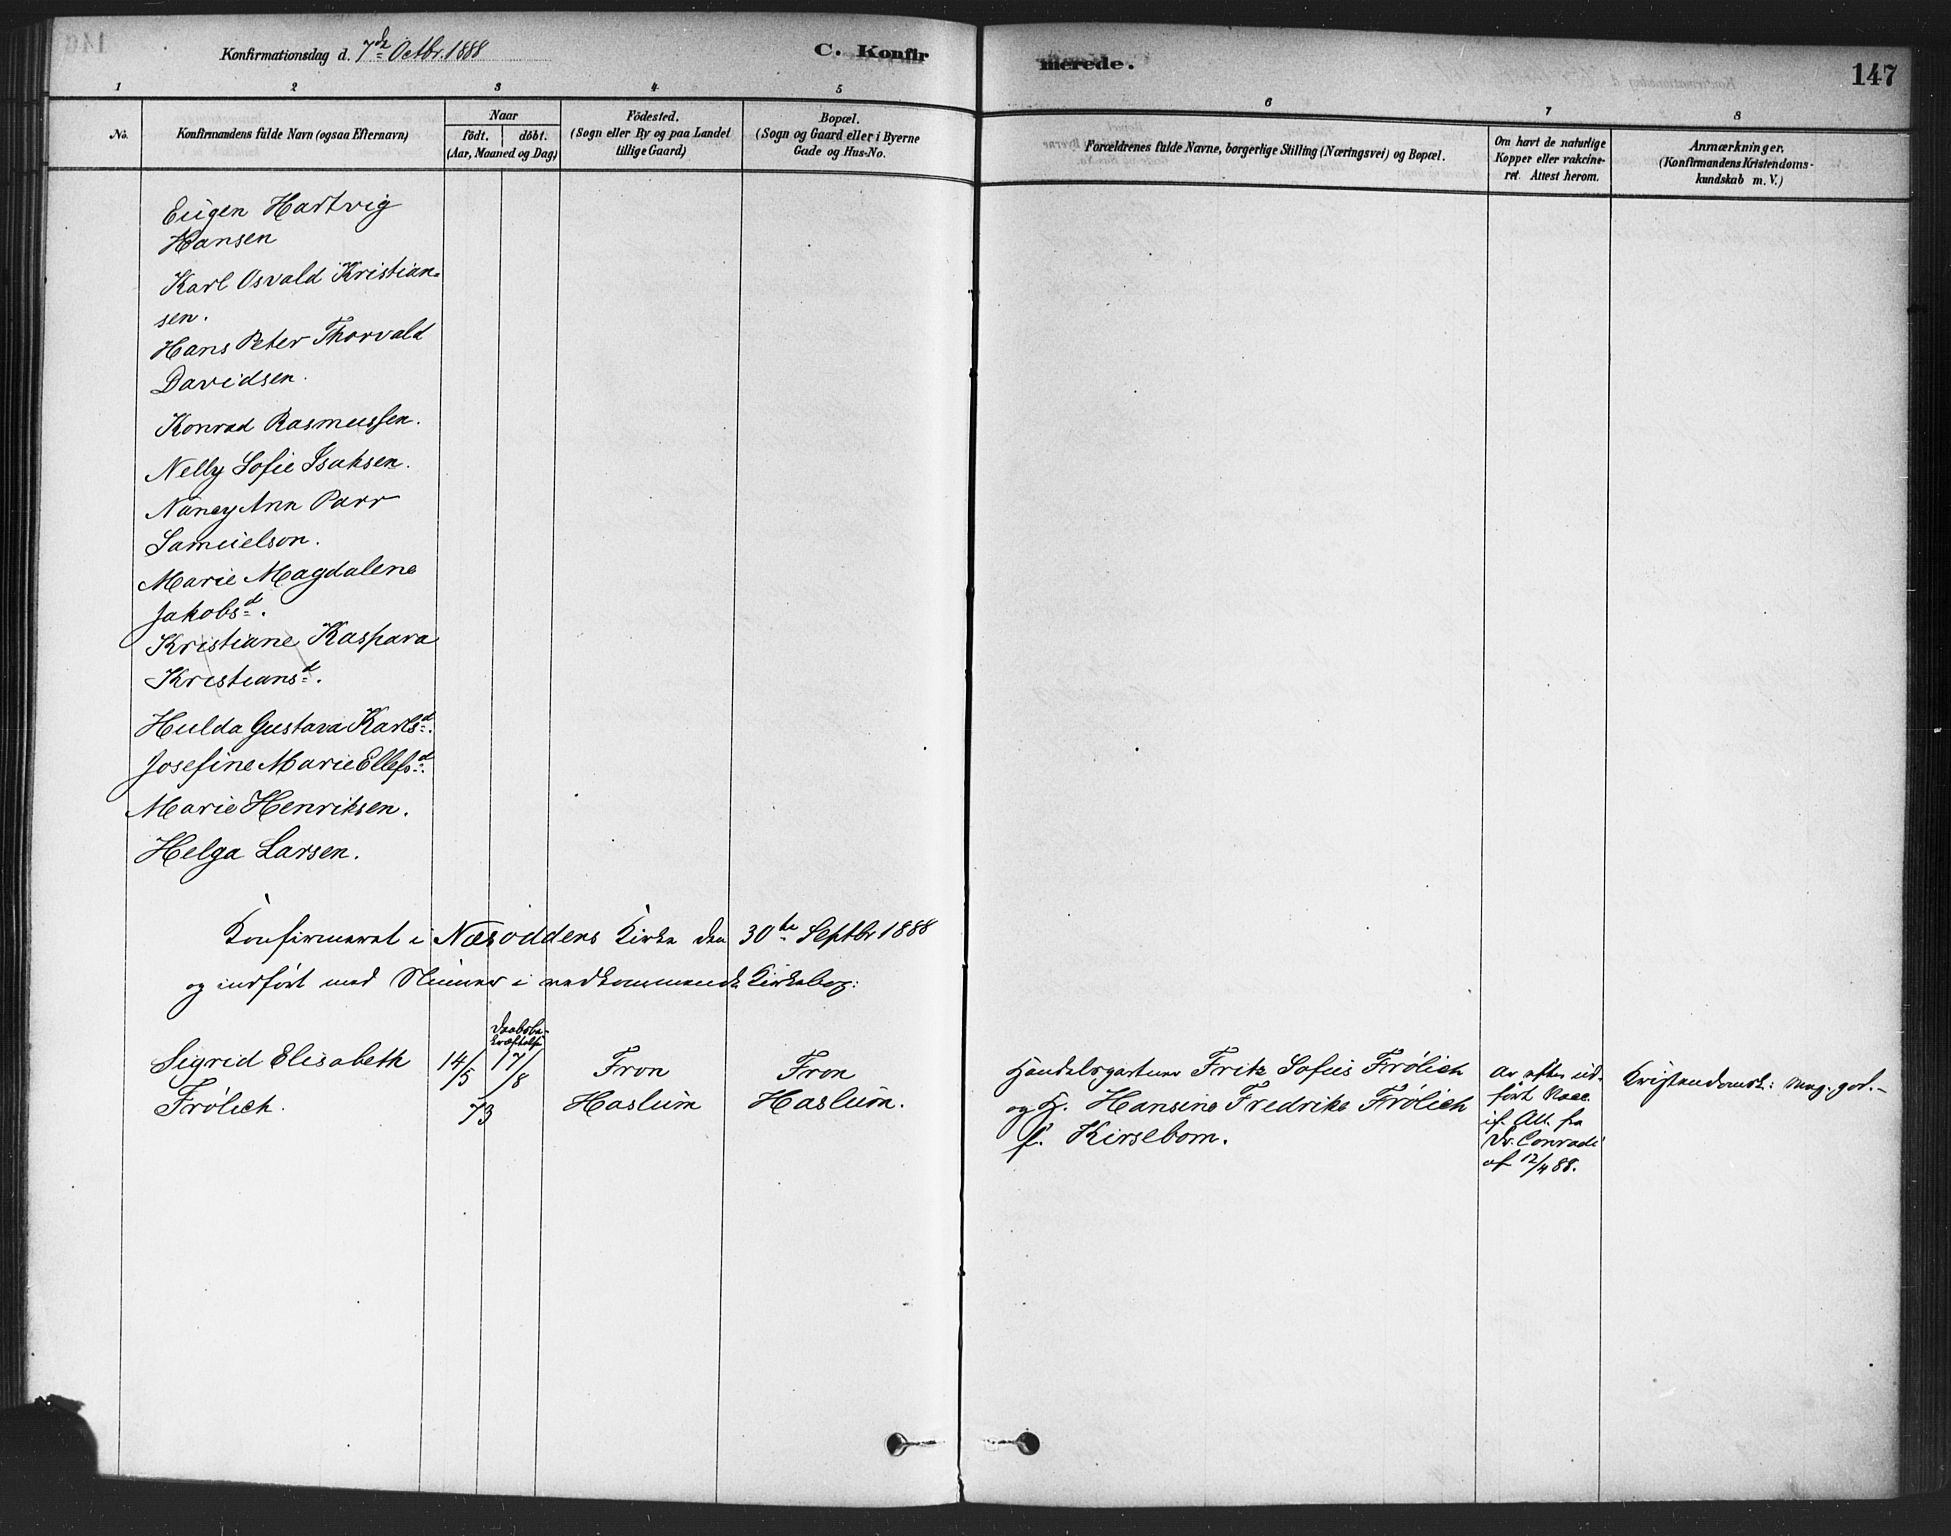 Konfirmationsdag d. 7de Octbr. 1888
C. Konfirmerede.
147
1 2 3 4 5 6 7 8
No.
Konfirmandens fulde Navn (ogsaa Efternavn)
Naar
födt. döbt.
(Aar, Maaned og Dag)
Födested.
(Sogn eller By og paa Landet
tillige Gaard)
Bopæl.
(Sogn og Gaard eller i Byerne
Gade og Hus-No.
Forældrenes fulde Navne, borgerlige Stilling (Næringsvei) og Bopæl.
Om havt de naturlige
Kopper eller vakcine-
ret. Attest herom.
Anmærkninger.
(Konfirmandens Kristendoms-
kundskab m. V.)
Eugen Hartvig
Hansen
Karl Osvald Kristian-
sen.
Hans Peter Thorvald
Davidsen.
Konrad Rasmussen.
Nelly Sofie Isaksen.
Nancy Ann Parr
Samuelson.
Marie Magdalene
Jakobsd.
Kristiane Kaspara
Kristiansd.
Hulda Gustava Karlsd.
Josefine Marie Ellefsd.
Marie Henriksen.
Helga Larsen.
Konfirmeret i Næsoddens Kirke den 30te Septbr 1888
og indført med Numer i vedkommende Kirkebog:
Daabsbe-
kræftelse
Sigrid Elisabeth 14/5 17/8 Fron Fron
Frølich. 73 Haslum Haslum.
Handelsgartner Fritz Sofus Frølich
og H. Hansine Fredrike Frølich
f. Kirsebom.
Ar efter ud-
ført Vacc.
if. Att. fra
Dr. Conradi
af 12/4 88.
Kristendomsk: meg. god.-